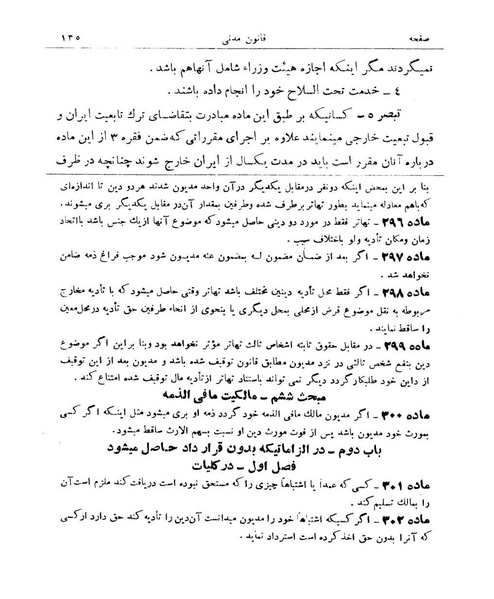 صفحه قانون مدنی ۱۳۵
نمیگردند مگر اینکه اجازه هیئت وزراء شامل آنهاهم باشد .
٤ - خدمت تحت السلاح خود را انجام داده باشند .
تبصر ه - کسانیکه بر طبق این ماده مبادرت بتقاضای ترك تابعیت ایران و
قبول تبعیت خارجی مینمایند علاوه بر اجرای مقرراتی که ضمن فقره ۳ از این ماده
درباره آنان مقرر است باید در مدت یکسال از ایران خارج شوند چنانچه در ظرف
بنا بر این بمحض اینکه دونفر درمقابل یکدیگر در آن واحد مدیون شدند هر دو دین تا اندازه‌ای
که باهم معادله مینماید بطور تهاتر بر طرف شده وطرفین بمقدار آن در مقابل یکدیگر بری میشوند .
ماده ۲۹٦ - تهاتر فقط در مورد دو دینی حاصل میشود که موضوع آنها از یك جنس باشد با اتحاد
زمان ومکان تأدیه ولو باختلاف سبب .
ماده ۲۹۷ - اگر بعد از ضمان مضمون له بمضمون عنه مدیون شود موجب فراغ ذمه ضامن
نخواهد شد .
ماده ۲۹۸ - اگر فقط محل تأدیه دینین مختلف باشد تهاتر وقتی حاصل میشود که با تأدیه مخارج
مربوطه به نقل موضوع قرض از محلی بمحل دیگری یا بنحوی از انحاء طرفین حق تأدیه در محل معین
را ساقط نمایند .
ماده ۲۹۹ - در مقابل حقوق ثابته اشخاص ثالث تهاتر مؤثر نخواهد بود وبنا بر این اگر موضوع
دین بنفع شخص ثالثی در نزد مدیون مطابق قانون توقیف شده باشد و مدیون بعد از این توقیف
از داین خود طلبکار گردد دیگر نمی تواند باستناد تهاتر از تأدیه مال توقیف شده امتناع کند .
مبحث ششم - مالکیت مافی الذمه
ماده ۳۰۰ - اگر مدیون مالك مافی الذمه خود گردد ذمه او بری میشود مثل اینکه اگر کسی
بمورث خود مدیون باشد پس از فوت مورث دین او نسبت بسهم الارث ساقط میشود.
باب دوم - در الزاماتیکه بدون قرار داد حاصل میشود
فصل اول - در کلیات
ماده ۳۰۱ - کسی که عمداً یا اشتباهاً چیزی را که مستحق نبوده است دریافت کند ملزم است آن
را بمالك تسلیم کند .
ماده ۳۰۲ - اگر کسیکه اشتباهاً خود را مدیون میدانست آن دین را تأدیه کند حق دارد از کسی
که آنرا بدون حق اخذ کرده است استرداد نماید .